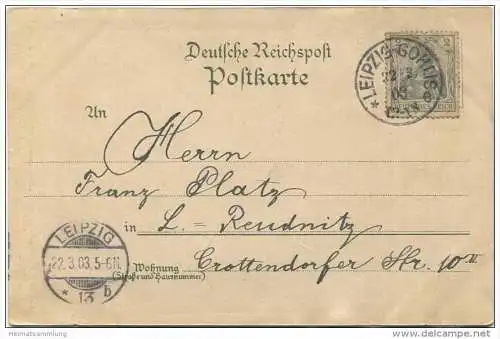 Deutsche Reichspost
Postkarte
LEIPZIG-GOHLIS
22 3
03
2
An
Herrn
Franz Platz
in L. = Reudnitz
Wohnung Crottendorfer Str. 10 II
(Straße und Hausnummer)
LEIPZIG
22.3.03.5-6N.
* 13 b
Heimatsammlung
www.delcampe.net